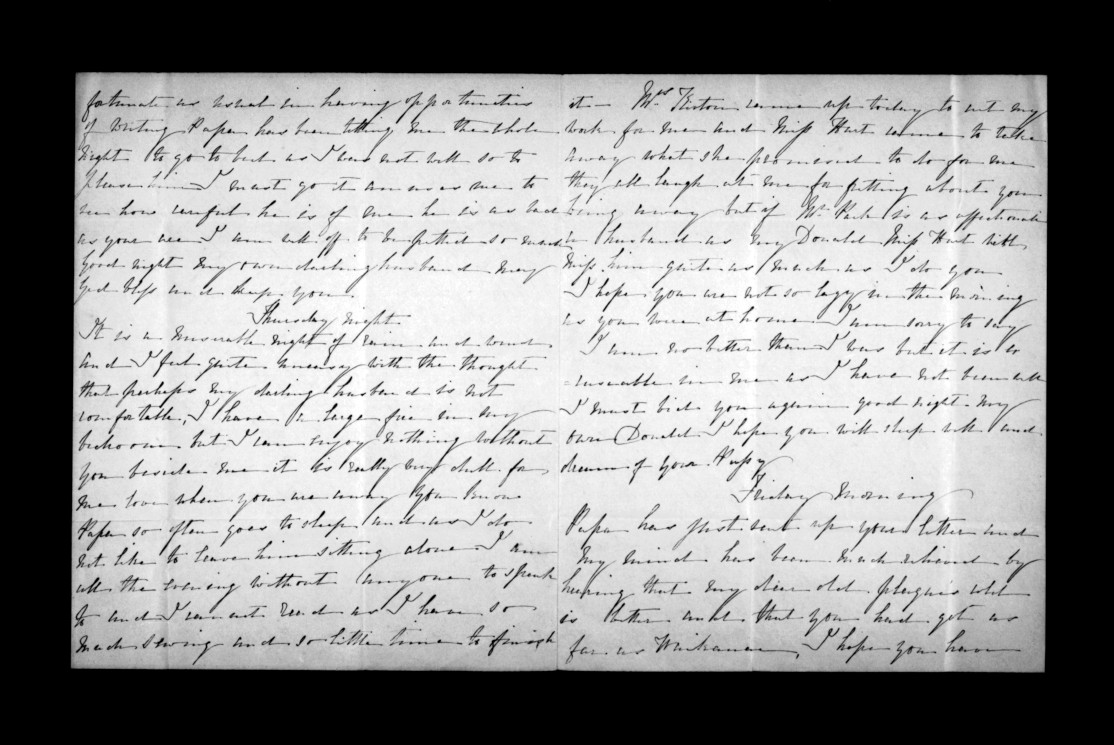 fortunate as usual in having opportunities
of writing Papa has been telling me the whole
night to go to bed as I was not well so to
please him I must go it amuses me to
see how careful he is of me he is as bad
as you are I am well off to be petted so much
good night my own darling husband may
God bless and keep you.
Thursday night.
It is a miserable night of rain and wind
and I feel quite uneasy with the thought
that perhaps my darling husband is not
comfortable, I have a large fire in my
bedroom but I can enjoy nothing without
you beside me it is really very dull for
me love when you are away you know
Papa so often goes to sleep and as I do
not like to leave him sitting alone I am
all the evening without anyone to speak
to and I can not read as I have so
much sewing and so little time to finish
it - Mrs came up today to cut my
work for me and Miss Hart came to take
away what she promised to do for me
they all laugh at me for fretting about your
being away but if Mr Park is as affectionate
a husband as my Donald Miss Hart will
miss him quite as much as I do you
I hope you are not so lazy in the morning
as you were at home I am sorry to say
I am no better than I was but it is
in me as I have not been well
I must bid you again good night my
own Donald I hope you will sleep well and
dream of your Pussy
Friday morning
Papa has just sent up your letter and
my mind has been much relieved by
hearing that my dear old cold
is better and that you had got as
far as I hope you have